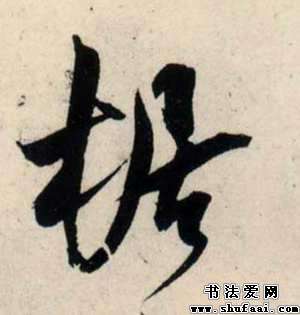 据
书法爱网
www.shufaai.com